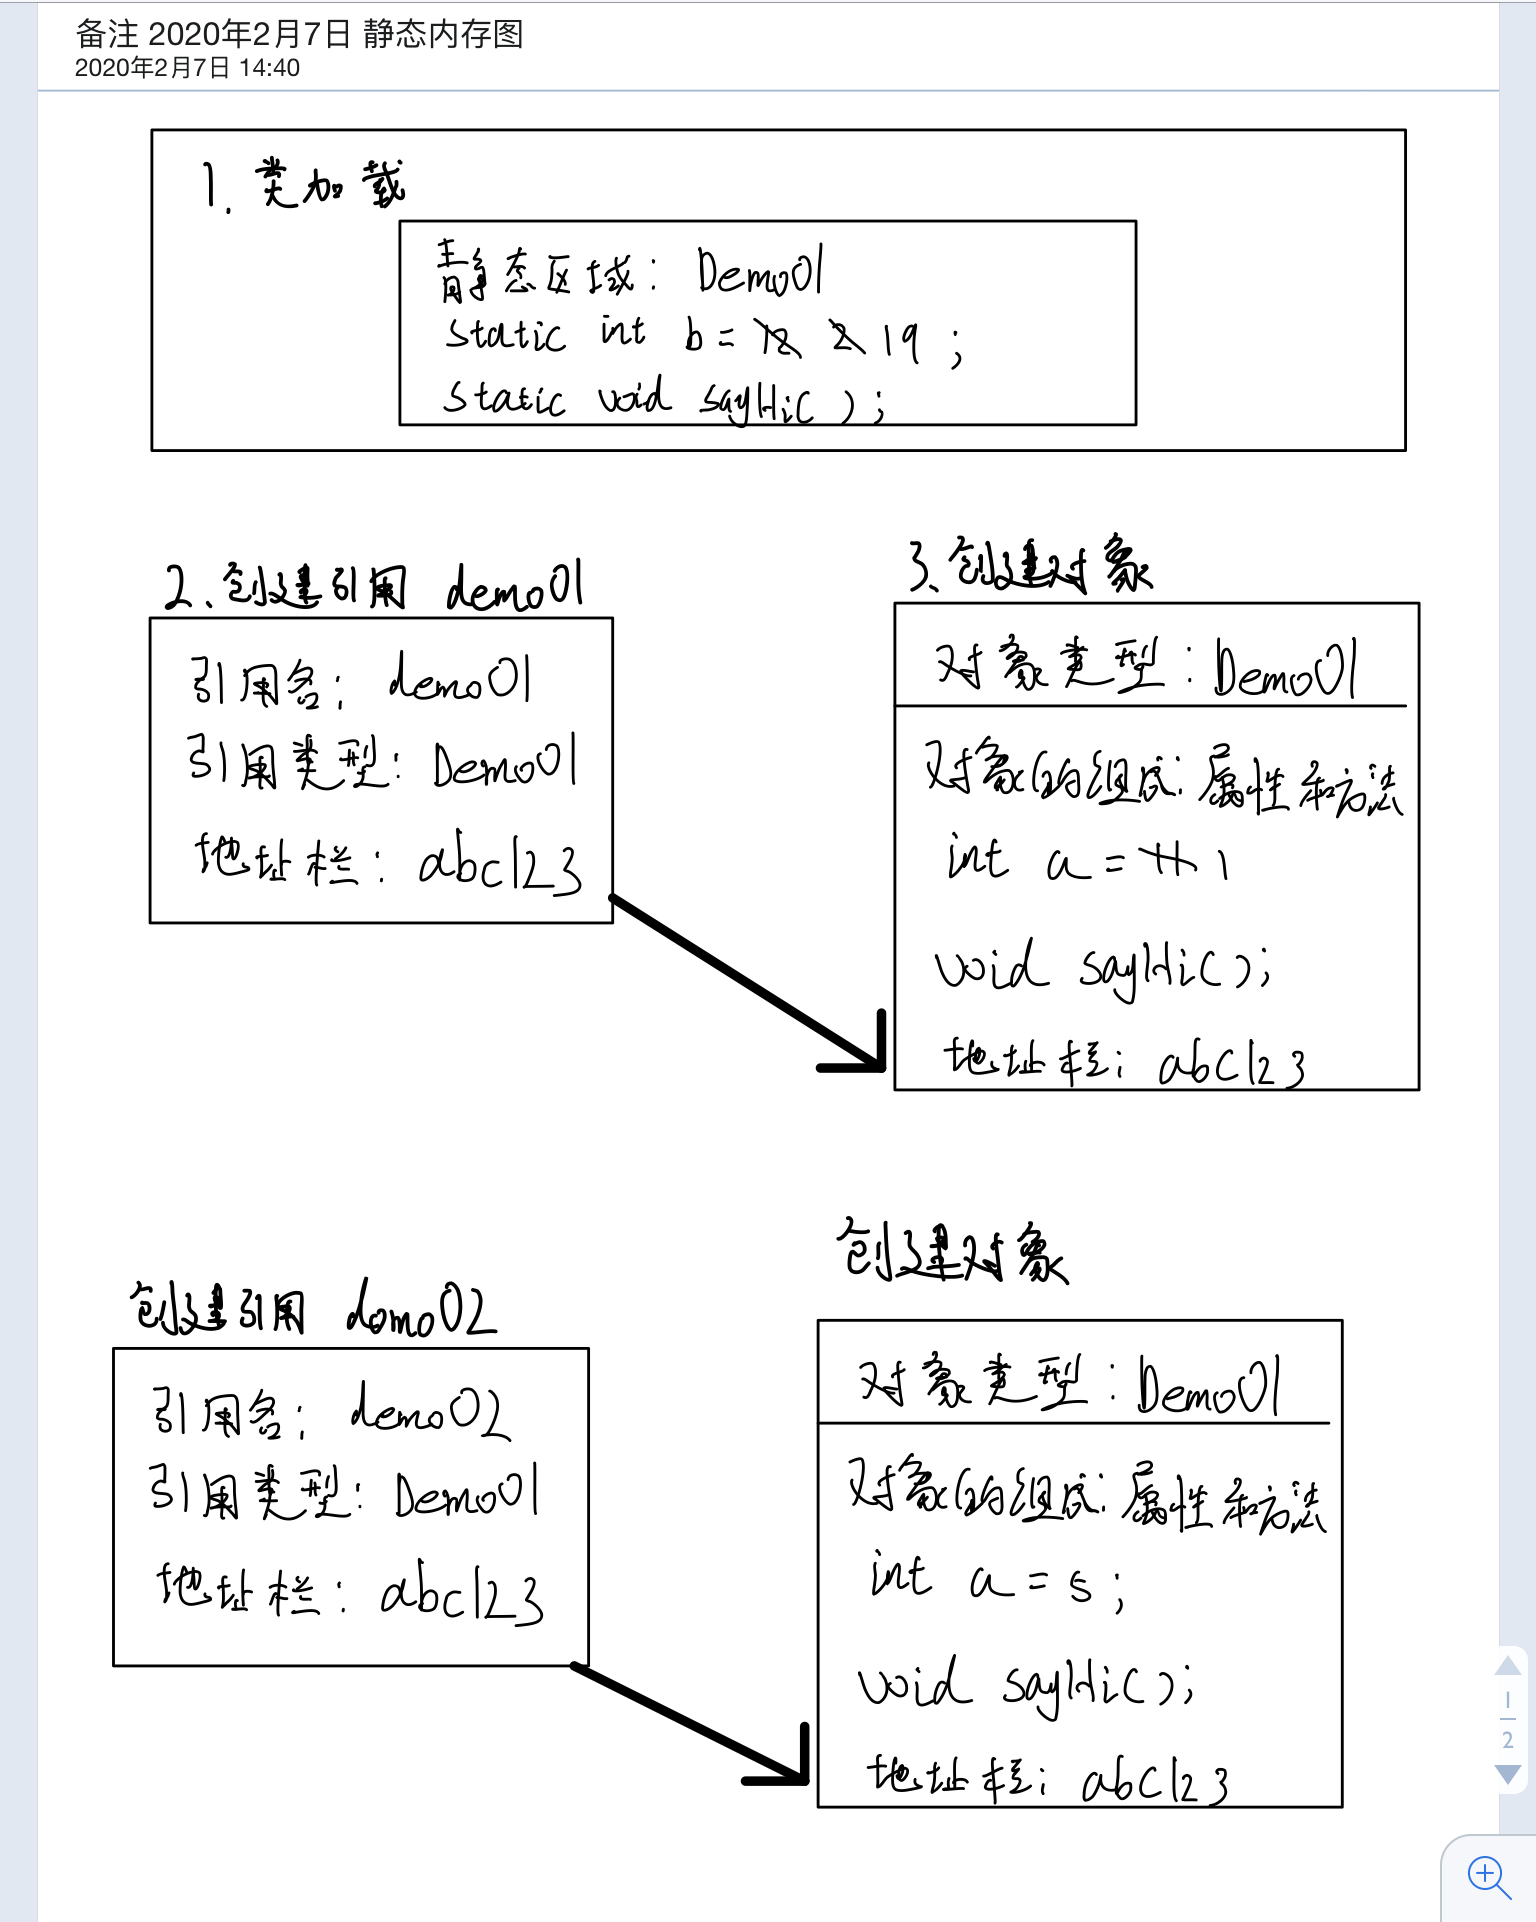 备注 2020年2月7日 静态内存图
2020年2月7日 14:40
1. 类加载
静态区域: Demo01
static int b = 12 2 19 ;
static void sayHi();
2.创建引用 demo01
引用名: demo01
引用类型: Demo01
地址栏: abc123
3.创建对象
对象类型: Demo01
对象的组成: 属性和方法
int a = 1
void sayHi();
地址栏: abc123
创建引用 demo02
引用名: demo02
引用类型: Demo01
地址栏: abc123
创建对象
对象类型: Demo01
对象的组成: 属性和方法
int a = 5 ;
void sayHi();
地址栏: abc123
1
2